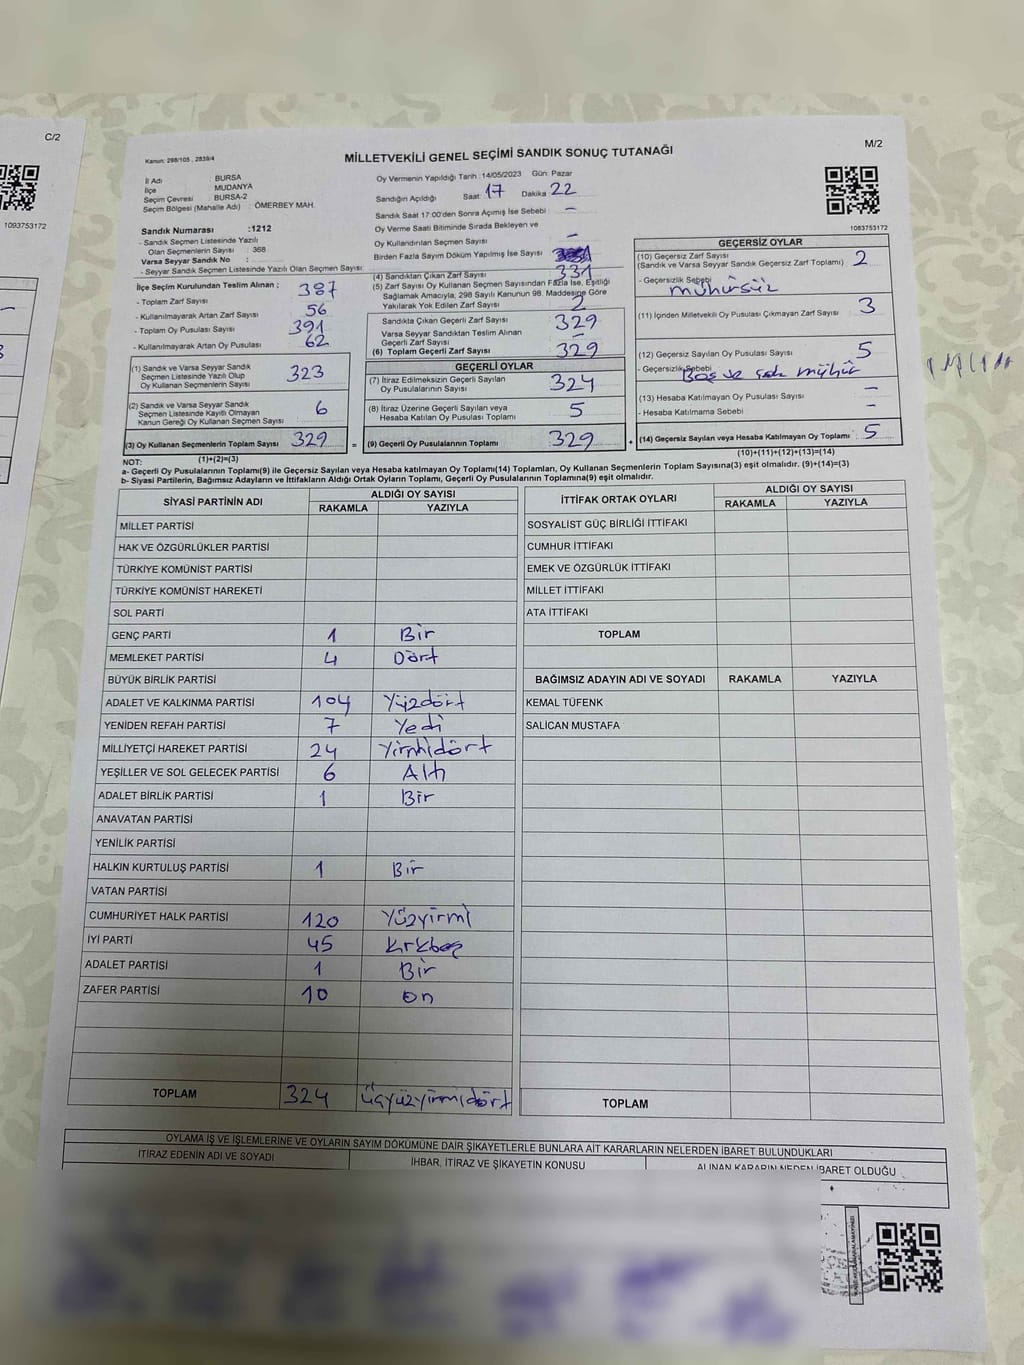 C/2
1093753172
M/2
Kanun: 298/105 , 2839/4
MİLLETVEKİLİ GENEL SEÇİMİ SANDIK SONUÇ TUTANAĞI
İl Adı : BURSA
İlçe : MUDANYA
Seçim Çevresi : BURSA-2
Seçim Bölgesi (Mahalle Adı) : ÖMERBEY MAH.
Oy Vermenin Yapıldığı Tarih :14/05/2023 Gün: Pazar
Sandığın Açıldığı Saat: 17 Dakika 22
Sandık Saat 17:00'den Sonra Açımış İse Sebebi : –
Oy Verme Saati Bitiminde Sırada Bekleyen ve
Oy Kullandırılan Seçmen Sayısı –
Birden Fazla Sayım Döküm Yapılmış İse Sayısı
1083753172
Sandık Numarası :1212
- Sandık Seçmen Listesinde Yazılı
Olan Seçmenlerin Sayısı : 368
Varsa Seyyar Sandık No :
- Seyyar Sandık Seçmen Listesinde Yazılı Olan Seçmen Sayısı:
İlçe Seçim Kurulundan Teslim Alınan ;
- Toplam Zarf Sayısı : 387
- Kullanılmayarak Artan Zarf Sayısı : 56
- Toplam Oy Pusulası Sayısı : 391
- Kullanılmayarak Artan Oy Pusulası : 62
(1) Sandık ve Varsa Seyyar Sandık
Seçmen Listesinde Yazılı Olup
Oy Kullanan Seçmenlerin Sayısı : 323
(2) Sandık ve Varsa Seyyar Sandık
Seçmen Listesinde Kayıtlı Olmayan
Kanun Gereği Oy Kullanan Seçmen Sayısı : 6
(3) Oy Kullanan Seçmenlerin Toplam Sayısı : 329
(1)+(2)=(3)
(4) Sandıktan Çıkan Zarf Sayısı : 331
(5) Zarftan Sayısı Oy Kullanan Seçmen Sayısından Fazla İse, Eşitliği
Sağlamak Amacıyla; 298 Sayılı Kanunun 98. Maddesine Göre
Yakılarak Yok Edilen Zarf Sayısı : 2
Sandıkta Çıkan Geçerli Zarf Sayısı : 329
Varsa Seyyar Sandıktan Teslim Alınan
Geçerli Zarf Sayısı : –
(6) Toplam Geçerli Zarf Sayısı : 329
GEÇERLİ OYLAR
(7) İtiraz Edilmeksizin Geçerli Sayılan
Oy Pusulalarının Sayısı : 324
(8) İtiraz Üzerine Geçerli Sayılan veya
Hesaba Katılan Oy Pusulaları Toplamı : 5
= (9) Geçerli Oy Pusulalarının Toplamı : 329 +
GEÇERSİZ OYLAR
(10) Geçersiz Zarf Sayısı : 2
(Sandık ve Varsa Seyyar Sandık Geçersiz Zarf Toplamı)
- Geçersizlik Sebebi : mühürsüz
(11) İçinden Milletvekili Oy Pusulası Çıkmayan Zarf Sayısı : 3
(12) Geçersiz Sayılan Oy Pusulası Sayısı : 5
- Geçersizlik Sebebi : Boş ve çok mühür
(13) Hesaba Katılmayan Oy Pusulası Sayısı : –
- Hesaba Katılmama Sebebi : –
(14) Geçersiz Sayılan veya Hesaba Katılmayan Oy Toplamı : 5
(10)+(11)+(12)+(13)=(14)
NOT:
a- Geçerli Oy Pusulalarının Toplamı(9) ile Geçersiz Sayılan veya Hesaba katılmayan Oy Toplamı(14) Toplamları, Oy Kullanan Seçmenlerin Toplam Sayısına(3) eşit olmalıdır. (9)+(14)=(3)
b- Siyasi Partilerin, Bağımsız Adayların ve İttifakların Aldığı Ortak Oyların Toplamı, Geçerli Oy Pusulalarının Toplamına(9) eşit olmalıdır.
SİYASİ PARTİNİN ADI ALDIĞI OY SAYISI
RAKAMLA YAZIYLA
MİLLET PARTİSİ
HAK VE ÖZGÜRLÜKLER PARTİSİ
TÜRKİYE KOMÜNİST PARTİSİ
TÜRKİYE KOMÜNİST HAREKETİ
SOL PARTİ
GENÇ PARTİ 1 Bir
MEMLEKET PARTİSİ 4 Dört
BÜYÜK BİRLİK PARTİSİ
ADALET VE KALKINMA PARTİSİ 104 Yüzdört
YENİDEN REFAH PARTİSİ 7 Yedi
MİLLİYETÇİ HAREKET PARTİSİ 24 Yirmidört
YEŞİLLER VE SOL GELECEK PARTİSİ 6 Altı
ADALET BİRLİK PARTİSİ 1 Bir
ANAVATAN PARTİSİ
YENİLİK PARTİSİ
HALKIN KURTULUŞ PARTİSİ 1 Bir
VATAN PARTİSİ
CUMHURİYET HALK PARTİSİ 120 Yüzyirmi
İYİ PARTİ 45 Kırkbeş
ADALET PARTİSİ 1 Bir
ZAFER PARTİSİ 10 On
TOPLAM 324 Üçyüzyirmidört
İTTİFAK ORTAK OYLARI ALDIĞI OY SAYISI
RAKAMLA YAZIYLA
SOSYALİST GÜÇ BİRLİĞİ İTTİFAKI
CUMHUR İTTİFAKI
EMEK VE ÖZGÜRLÜK İTTİFAKI
MİLLET İTTİFAKI
ATA İTTİFAKI
TOPLAM
BAĞIMSIZ ADAYIN ADI VE SOYADI RAKAMLA YAZIYLA
KEMAL TÜFENK
SALİCAN MUSTAFA
TOPLAM
OYLAMA İŞ VE İŞLEMLERİNE VE OYLARIN SAYIM DÖKÜMÜNE DAİR ŞİKAYETLERLE BUNLARA AİT KARARLARIN NELERDEN İBARET BULUNDUKLARI
İTİRAZ EDENİN ADI VE SOYADI İHBAR, İTİRAZ VE ŞİKAYETİN KONUSU ALINAN KARARIN NEDEN İBARET OLDUĞU